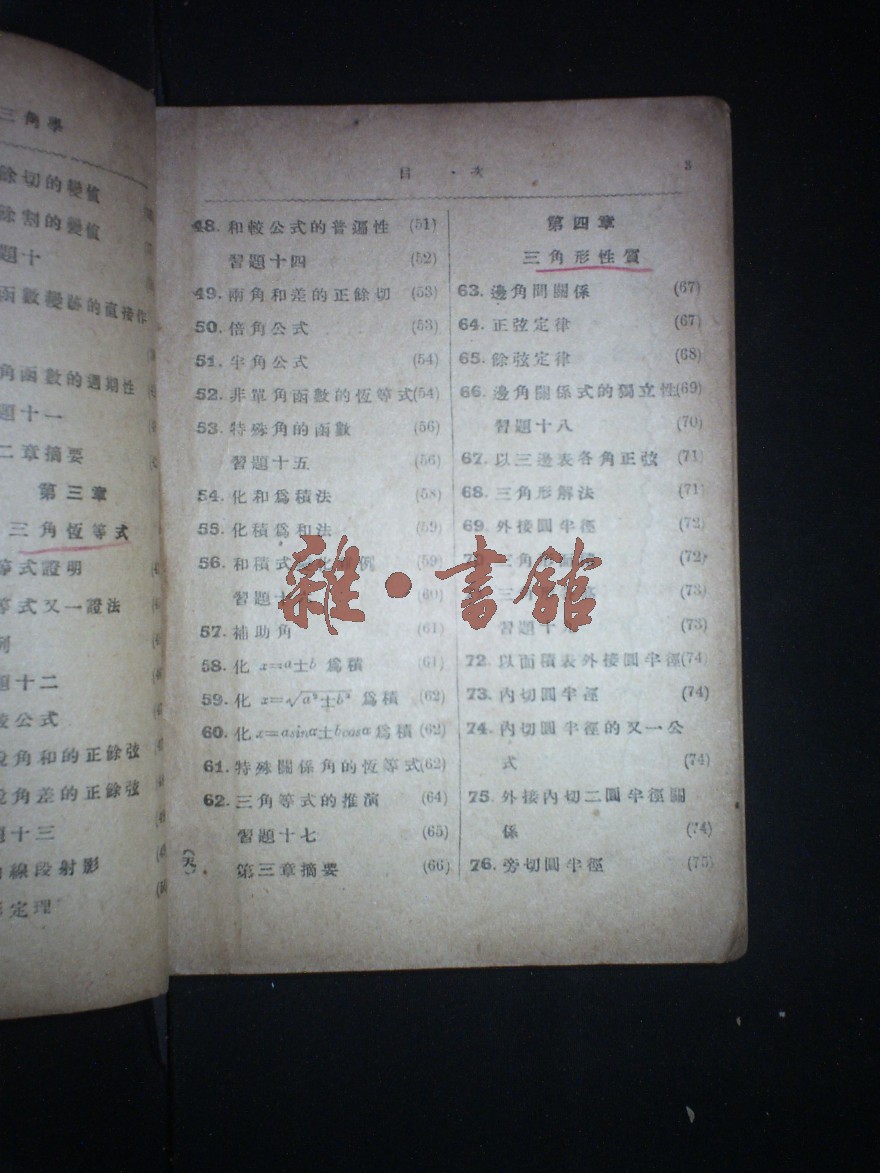 三角學
餘切的變值
餘割的變值
題十
函數變跡的直接作
角函數的週期性
題十一
二章摘要
第三章
三角恆等式
等式證明
等式又一證法
例
題十二
較公式
銳角和的正餘弦
銳角差的正餘弦
題十三
線段射影
定理
目 次 3
48. 和較公式的普遍性 (51)
習題十四 (52)
49. 兩角和差的正餘切 (53)
50. 倍角公式 (53)
51. 半角公式 (54)
52. 非單角函數的恆等式(54)
53. 特殊角的函數 (56)
習題十五 (56)
54. 化和爲積法 (58)
55. 化積爲和法 (59)
56. 和積式 化 例 (59)
習題十六 (60)
57. 補助角 (61)
58. 化 x=a±b 爲積 (61)
59. 化 x=√a²±b² 爲積 (62)
60. 化 x=asinα±bcosα 爲積 (62)
61. 特殊關係角的恆等式(62)
62. 三角等式的推演 (64)
習題十七 (65)
第三章摘要 (66)
第四章
三角形性質
63. 邊角間關係 (67)
64. 正弦定律 (67)
65. 餘弦定律 (68)
66. 邊角關係式的獨立性(69)
習題十八 (70)
67. 以三邊表各角正弦 (71)
68. 三角形解法 (71)
69. 外接圓半徑 (72)
70. 三角形面積 (72)
三 (73)
習題十九 (73)
72. 以面積表外接圓半徑(74)
73. 內切圓半徑 (74)
74. 內切圓半徑的又一公
式 (74)
75. 外接內切二圓半徑關
係 (74)
76. 旁切圓半徑 (75)
雜·書館